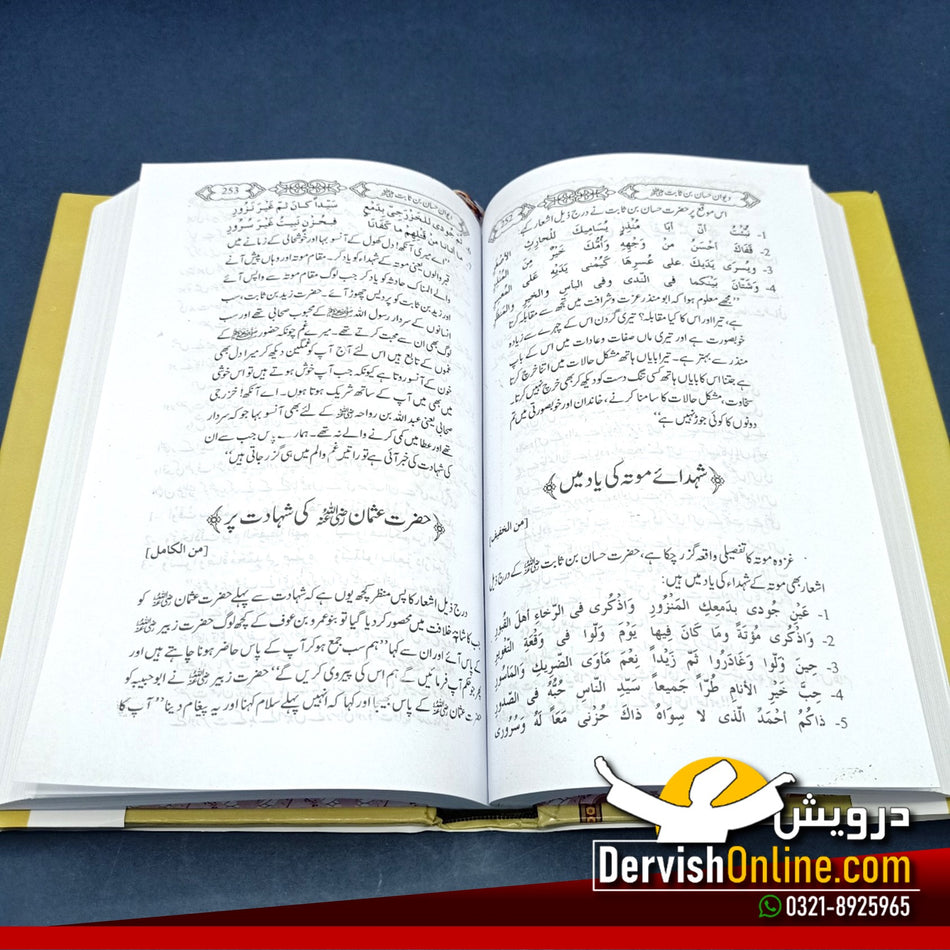 252
دیوان حسان بن ثابت ﷜
اس موقع پر حضرت حسان بن ثابت نے درج ذیل اشعار کہے
1- نُبِّئْتُ أَنَّ أَبَا مُنْذِرٍ يُسَامِيكَ لِلْحَارِثِ
2- قَفَاكَ أَحْسَنُ مِنْ وَجْهِهِ وَأُمُّكَ خَيْرٌ مِنَ الْمُنْذِرِ
3- وَيُسْرَى يَدَيْكَ عَلَى عُسْرِهَا كَيُمْنَى يَدَيْهِ عَلَى
4- وَشَتَّانَ بَيْنَكُمَا فِي النَّدَى وَفِي الْبَأْسِ وَالْخَيْرِ
”مجھے معلوم ہوا کہ ابو منذر عزت و شرافت میں تجھ سے مقابلہ کرتا
ہے، تیرا اور اس کا کیا مقابلہ؟ تیری گردن اس کے چہرے سے زیادہ
خوبصورت ہے اور تیری ماں صفات و عادات میں اس کے باپ
منذر سے بہتر ہے۔ تیرا بایاں ہاتھ مشکل حالات میں اتنا خرچ کرتا
ہے جتنا اس کا بایاں ہاتھ کسی تنگ دست کو دیکھ کر بھی خرچ نہیں کرتا۔
سخاوت، مشکل حالات کا سامنا کرنے، خاندان اور خوبصورتی میں تم
دونوں کا کوئی جوڑ نہیں ہے“
شہدائے موتہ کی یاد میں
[من الخفیف]
غزوہ موتہ کا تفصیلی واقعہ گزر چکا ہے، حضرت حسان بن ثابت ﷜ کے درج ذیل
اشعار بھی موتہ کے شہداء کی یاد میں ہیں:
1- عَيْنِ جُودِى بِدَمْعِكِ الْمَنْزُورِ وَاذْكُرِى فِى الرَّخَاءِ أَهْلَ الْقُبُورِ
2- وَاذْكُرِى مُؤْتَةً وَمَا كَانَ فِيهَا يَوْمَ وَلَّوْا فِى وَقْعَةِ التَّغْوِيرِ
3- حِينَ وَلَّوْا وَغَادَرُوا ثَمَّ زَيْداً نِعْمَ مَأْوَى الضَّرِيكِ وَالْمَأْسُورِ
4- حِبَّ خَيْرِ الْأَنَامِ طُرًّا جَمِيعاً سَيِّدَ النَّاسِ حُبُّهُ فِى الصُّدُورِ
5- ذَاكُمُ أَحْمَدُ الَّذِى لَا سِوَاهُ ذَاكَ حُزْنِى مَعاً لَهُ وَسُرُورِى
253
دیوان حسان بن ثابت ﷜
جُودِى لِلْخَزْرَجِيِّ بِدَمْعٍ سَيِّداً كَانَ ثَمَّ غَيْرَ نَزُورِ
أَتَانَا مِنْ قَتْلِهِمْ مَا كَفَانَا فَبِحُزْنٍ نَبِيتُ غَيْرَ سُرُورِ
”اے میری آنکھ! دل کھول کے آنسو بہا اور خوشحالی کے زمانے میں
قبر والوں یعنی موتہ کے شہداء کو یاد کر۔ مقام موتہ اور وہاں پیش آنے
والے المناک حادثہ کو یاد کر جب لوگ مقام موتہ سے واپس آئے
اور زید بن ثابت کو پردیس چھوڑ آئے۔ حضرت زید بن ثابت، سب
انسانوں کے سردار رسول اللہ ﷺ کے محبوب صحابی تھے اور سب
لوگ بھی ان سے محبت کرتے تھے۔ میرے غم چونکہ حضور ﷺ کے
غموں کے تابع ہیں اس لئے آج آپ کو غمگین دیکھ کر میرا دل بھی
خون کے آنسو روتا ہے کیونکہ جب آپ خوش ہوتے ہیں تو اس خوشی
میں بھی میں آپ کے ساتھ شریک ہوتا ہوں۔ اے آنکھ! خزرجی
صحابی یعنی عبد اللہ بن رواحہ ﷜ کے لئے بھی آنسو بہا جو کہ سردار
تھے اور عطا میں کمی کرنے والے نہ تھے۔ ہمارے پاس جب سے ان
کی شہادت کی خبر آئی ہے تو راتیں غم والم میں ہی گزر جاتی ہیں“
حضرت عثمان رضی اللہ عنہ کی شہادت پر
[من الکامل]
درج ذیل اشعار کا پس منظر کچھ یوں ہے کہ شہادت سے پہلے حضرت عثمان ﷜ کو
جب کاشانہ خلافت میں محصور کر دیا گیا تو بنو عمرو بن عوف کے کچھ لوگ حضرت زبیر ﷜
کے پاس آئے اور ان سے کہا ”ہم سب جمع ہو کر آپ کے پاس حاضر ہونا چاہتے ہیں اور
پھر جو حکم آپ فرمائیں گے ہم اس کی پیروی کریں گے“ حضرت زبیر ﷜ نے ابو حبیبہ کو
حضرت عثمان ﷜ کے پاس بھیجا اور کہا کہ انہیں پہلے سلام کہنا اور یہ پیغام دینا ”آپ کا
درویش
DervishOnline.com
0321-8925965